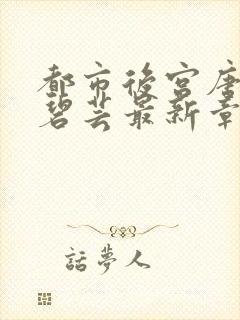 都市後宮唐
碧芸最新章
話夢人